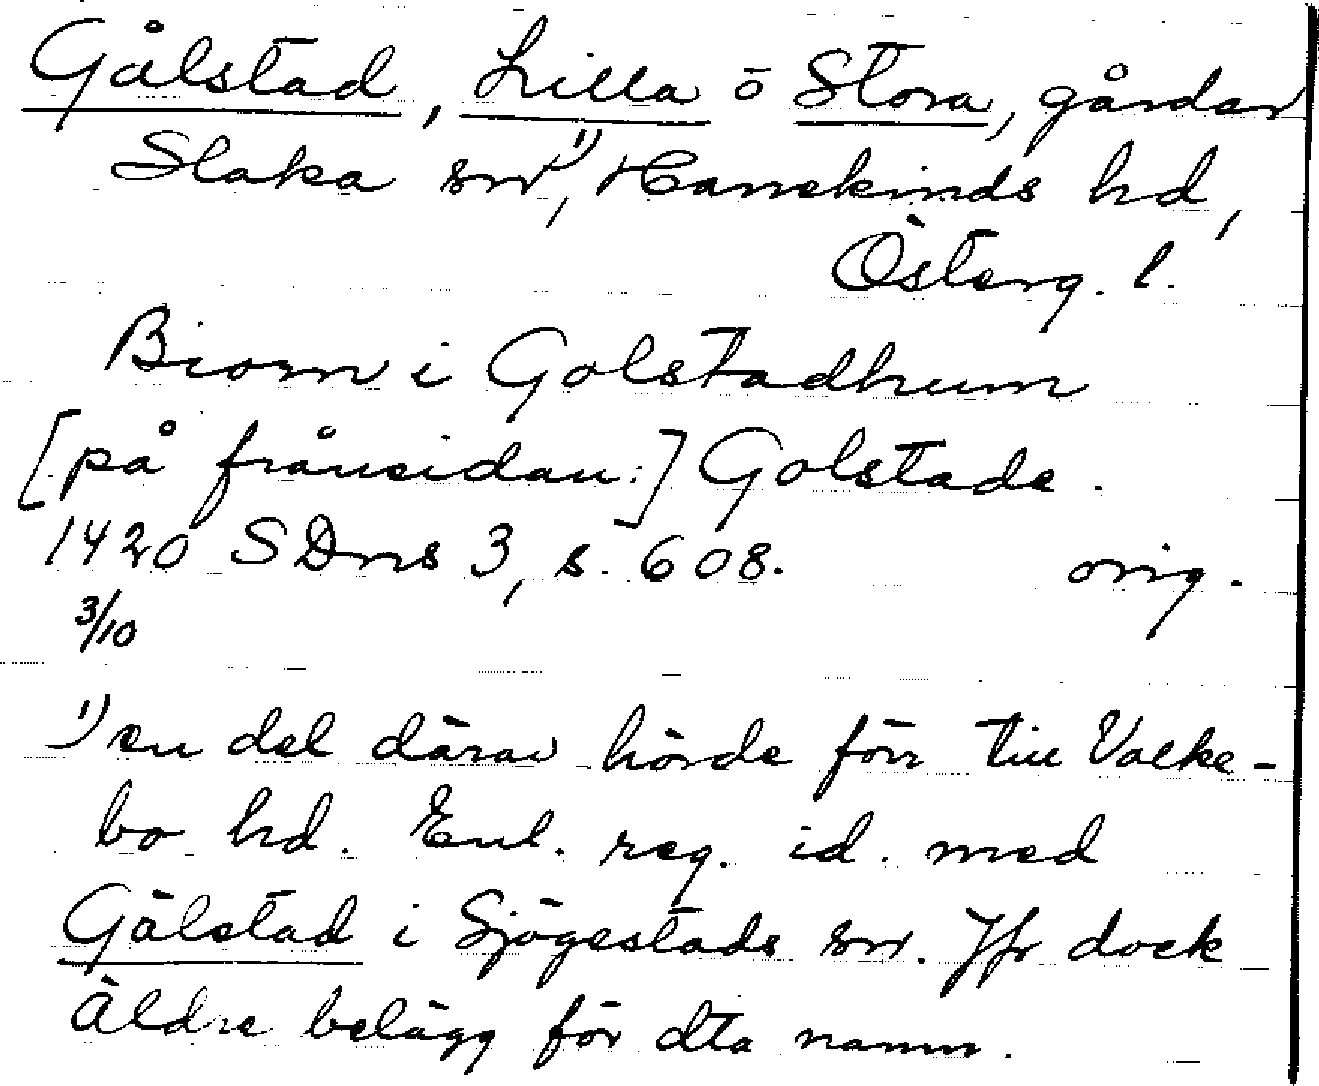 Gålstad, Lilla o Stora, gårdar
Slaka sn¹⁾, Hanekinds hd,
Österg. l.
Biorn i Golstadhum
[på frånsidan:] Golstade.
1420 SDns 3, s. 608. orig.
3/10
¹⁾ en del därav hörde förr till Valke-
bo hd. Enl. reg. id. med
Gälstad i Sjögestads sn. Jfr dock
äldre belägg för dta namn.